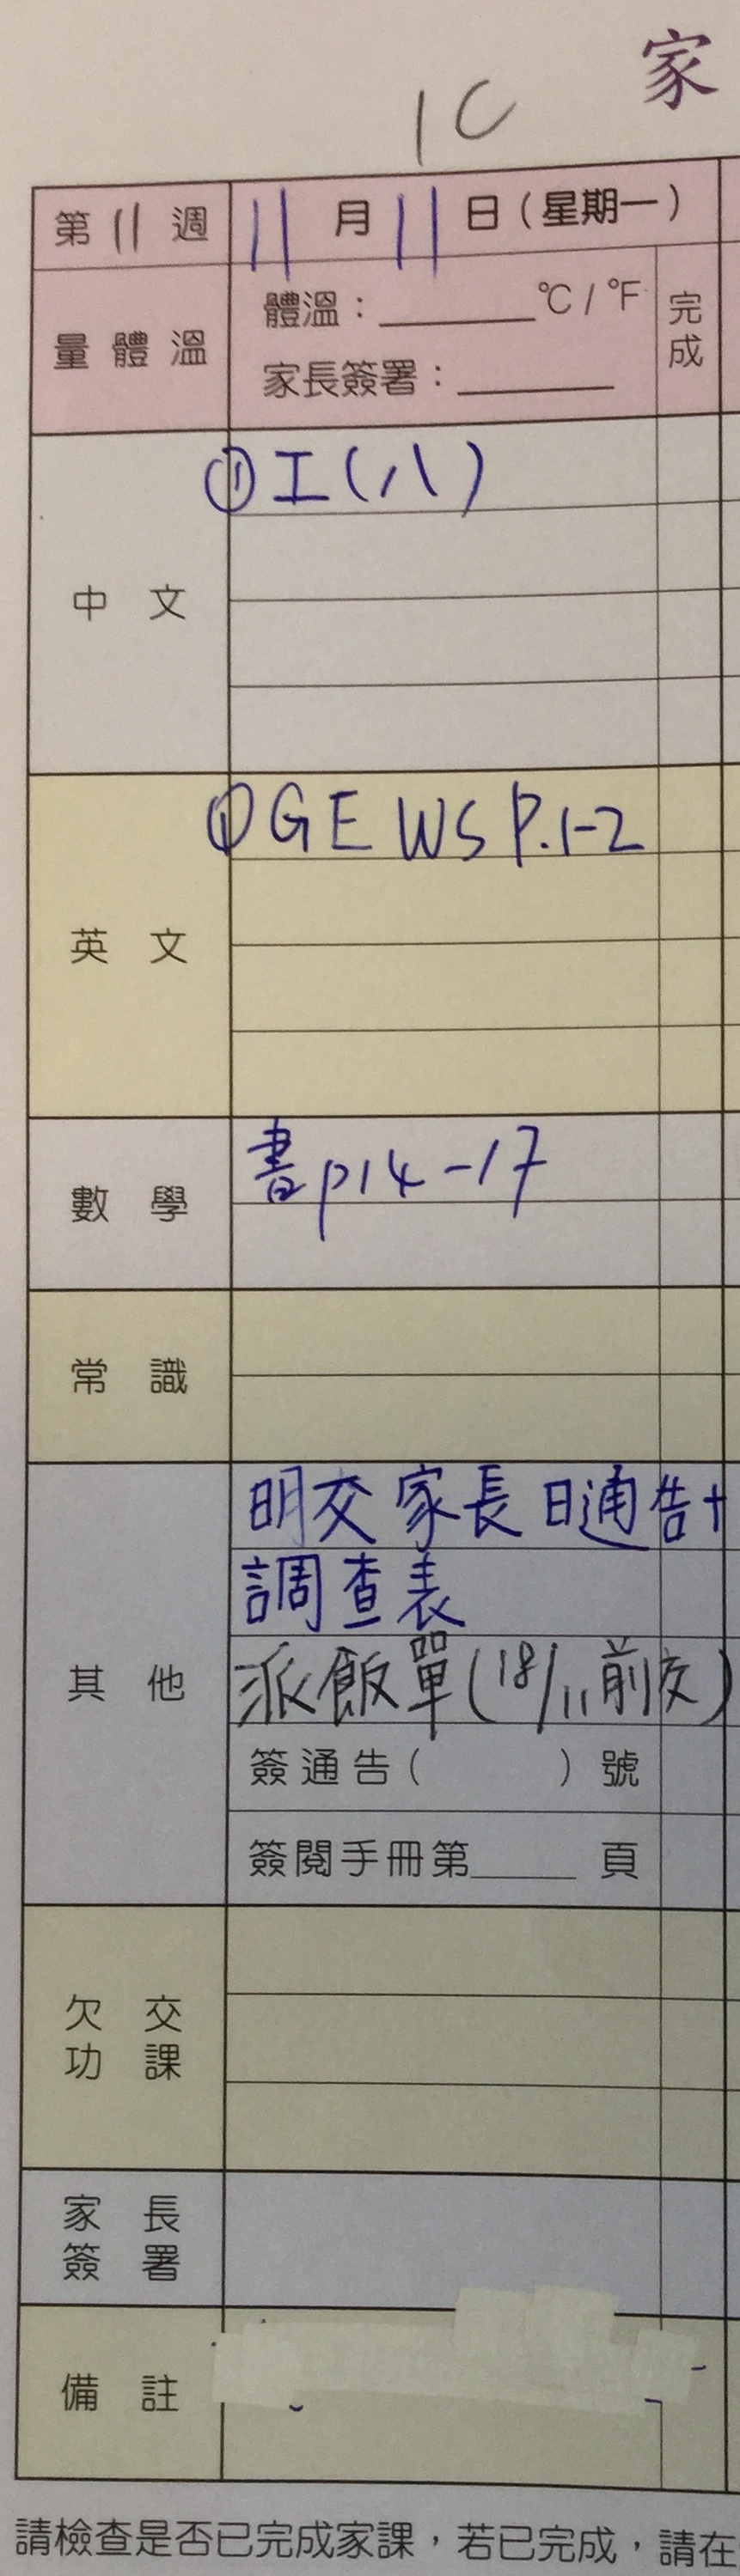 家
1C
第11週 11月11日(星期一)
量體溫 體溫:______°C / °F 完成
家長簽署:______
中文 ①工(八)
英文 ①GE WS P.1-2
數學 書p14-17
常識
其他 明交家長日通告+
調查表
派飯單(18/11前交)
簽通告( )號
簽閱手冊第______頁
欠交
功課
家長
簽署
備註
請檢查是否已完成家課,若已完成,請在